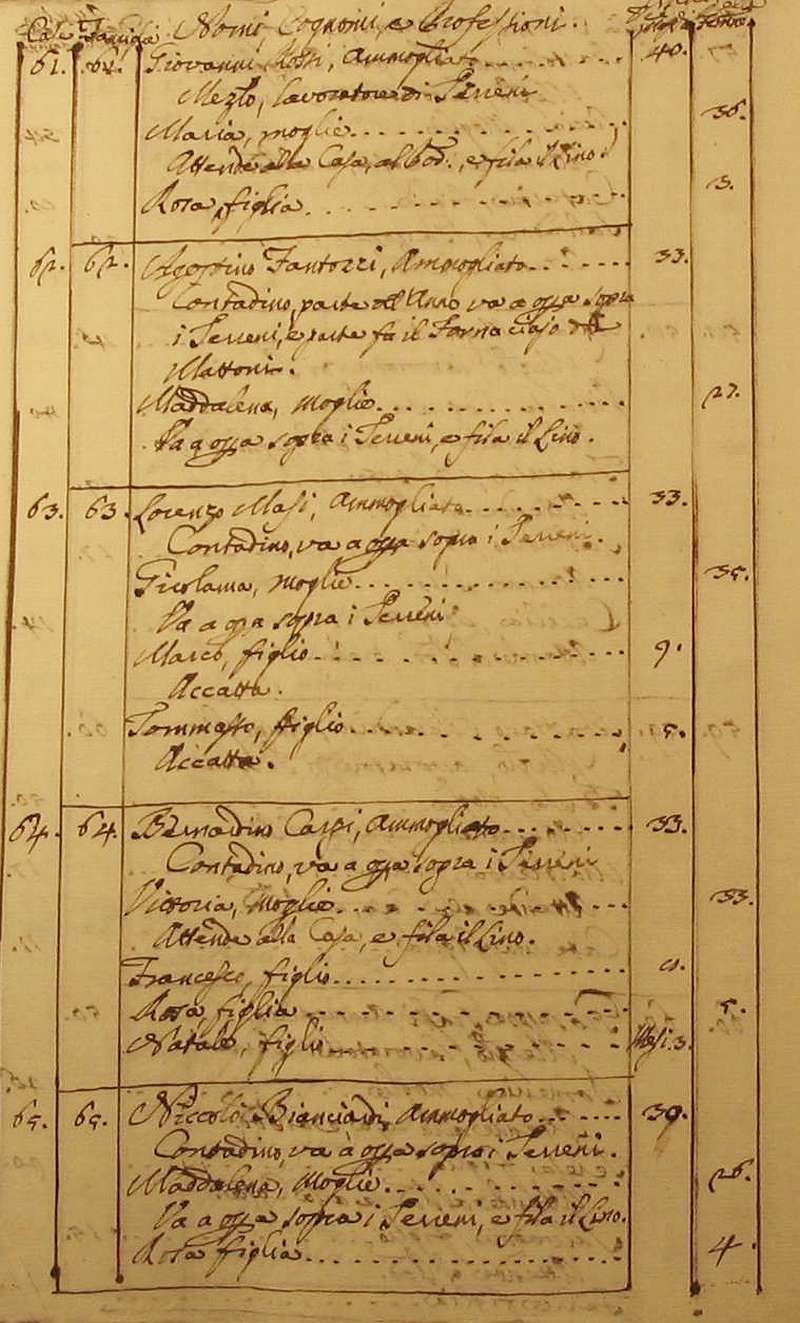 Case Famiglie Nomi, Cognomi, e Professioni.
61. 61. Giovanni Rossi, Ammogliato 40.
lavoratore di Terreni
Maria, moglie 36.
Attende alla Casa, al Pod., e fila il Lino.
Rosa, figlia 3.
62. 62. Agostino Fantozzi, Ammogliato 33.
Contadino, parte dell'Anno va a opra sopra
i Terreni, e parte fa il Fornaciajo di
Mattoni.
Maddalena, moglie 27.
Va a opra sopra i Terreni, e fila il Lino.
63. 63. Lorenzo Masi, Ammogliato 33.
Contadino, va a opra sopra i Terreni.
Girolama, moglie 35.
Va a opra sopra i Terreni
Marco, figlio 9.
Accatta.
Tommasso, figlio 5.
Accatta.
64. 64. Bernardino Carpi, Ammogliato 33.
Contadino, va a opra sopra i Terreni
Vittoria, Moglie 33.
Attende alla Casa, e fila il Lino.
Francesco, figlio
Rosa, figlia 5.
Natale, figlio Mesi 3.
65. 65. Niccolò Bianciardi, Ammogliato 39.
Contadino, va à opra sopra i Terreni.
Maddalena, Moglie 26.
Va a opra sopra i Terreni, e fila il Lino.
Rosa figlia 4.